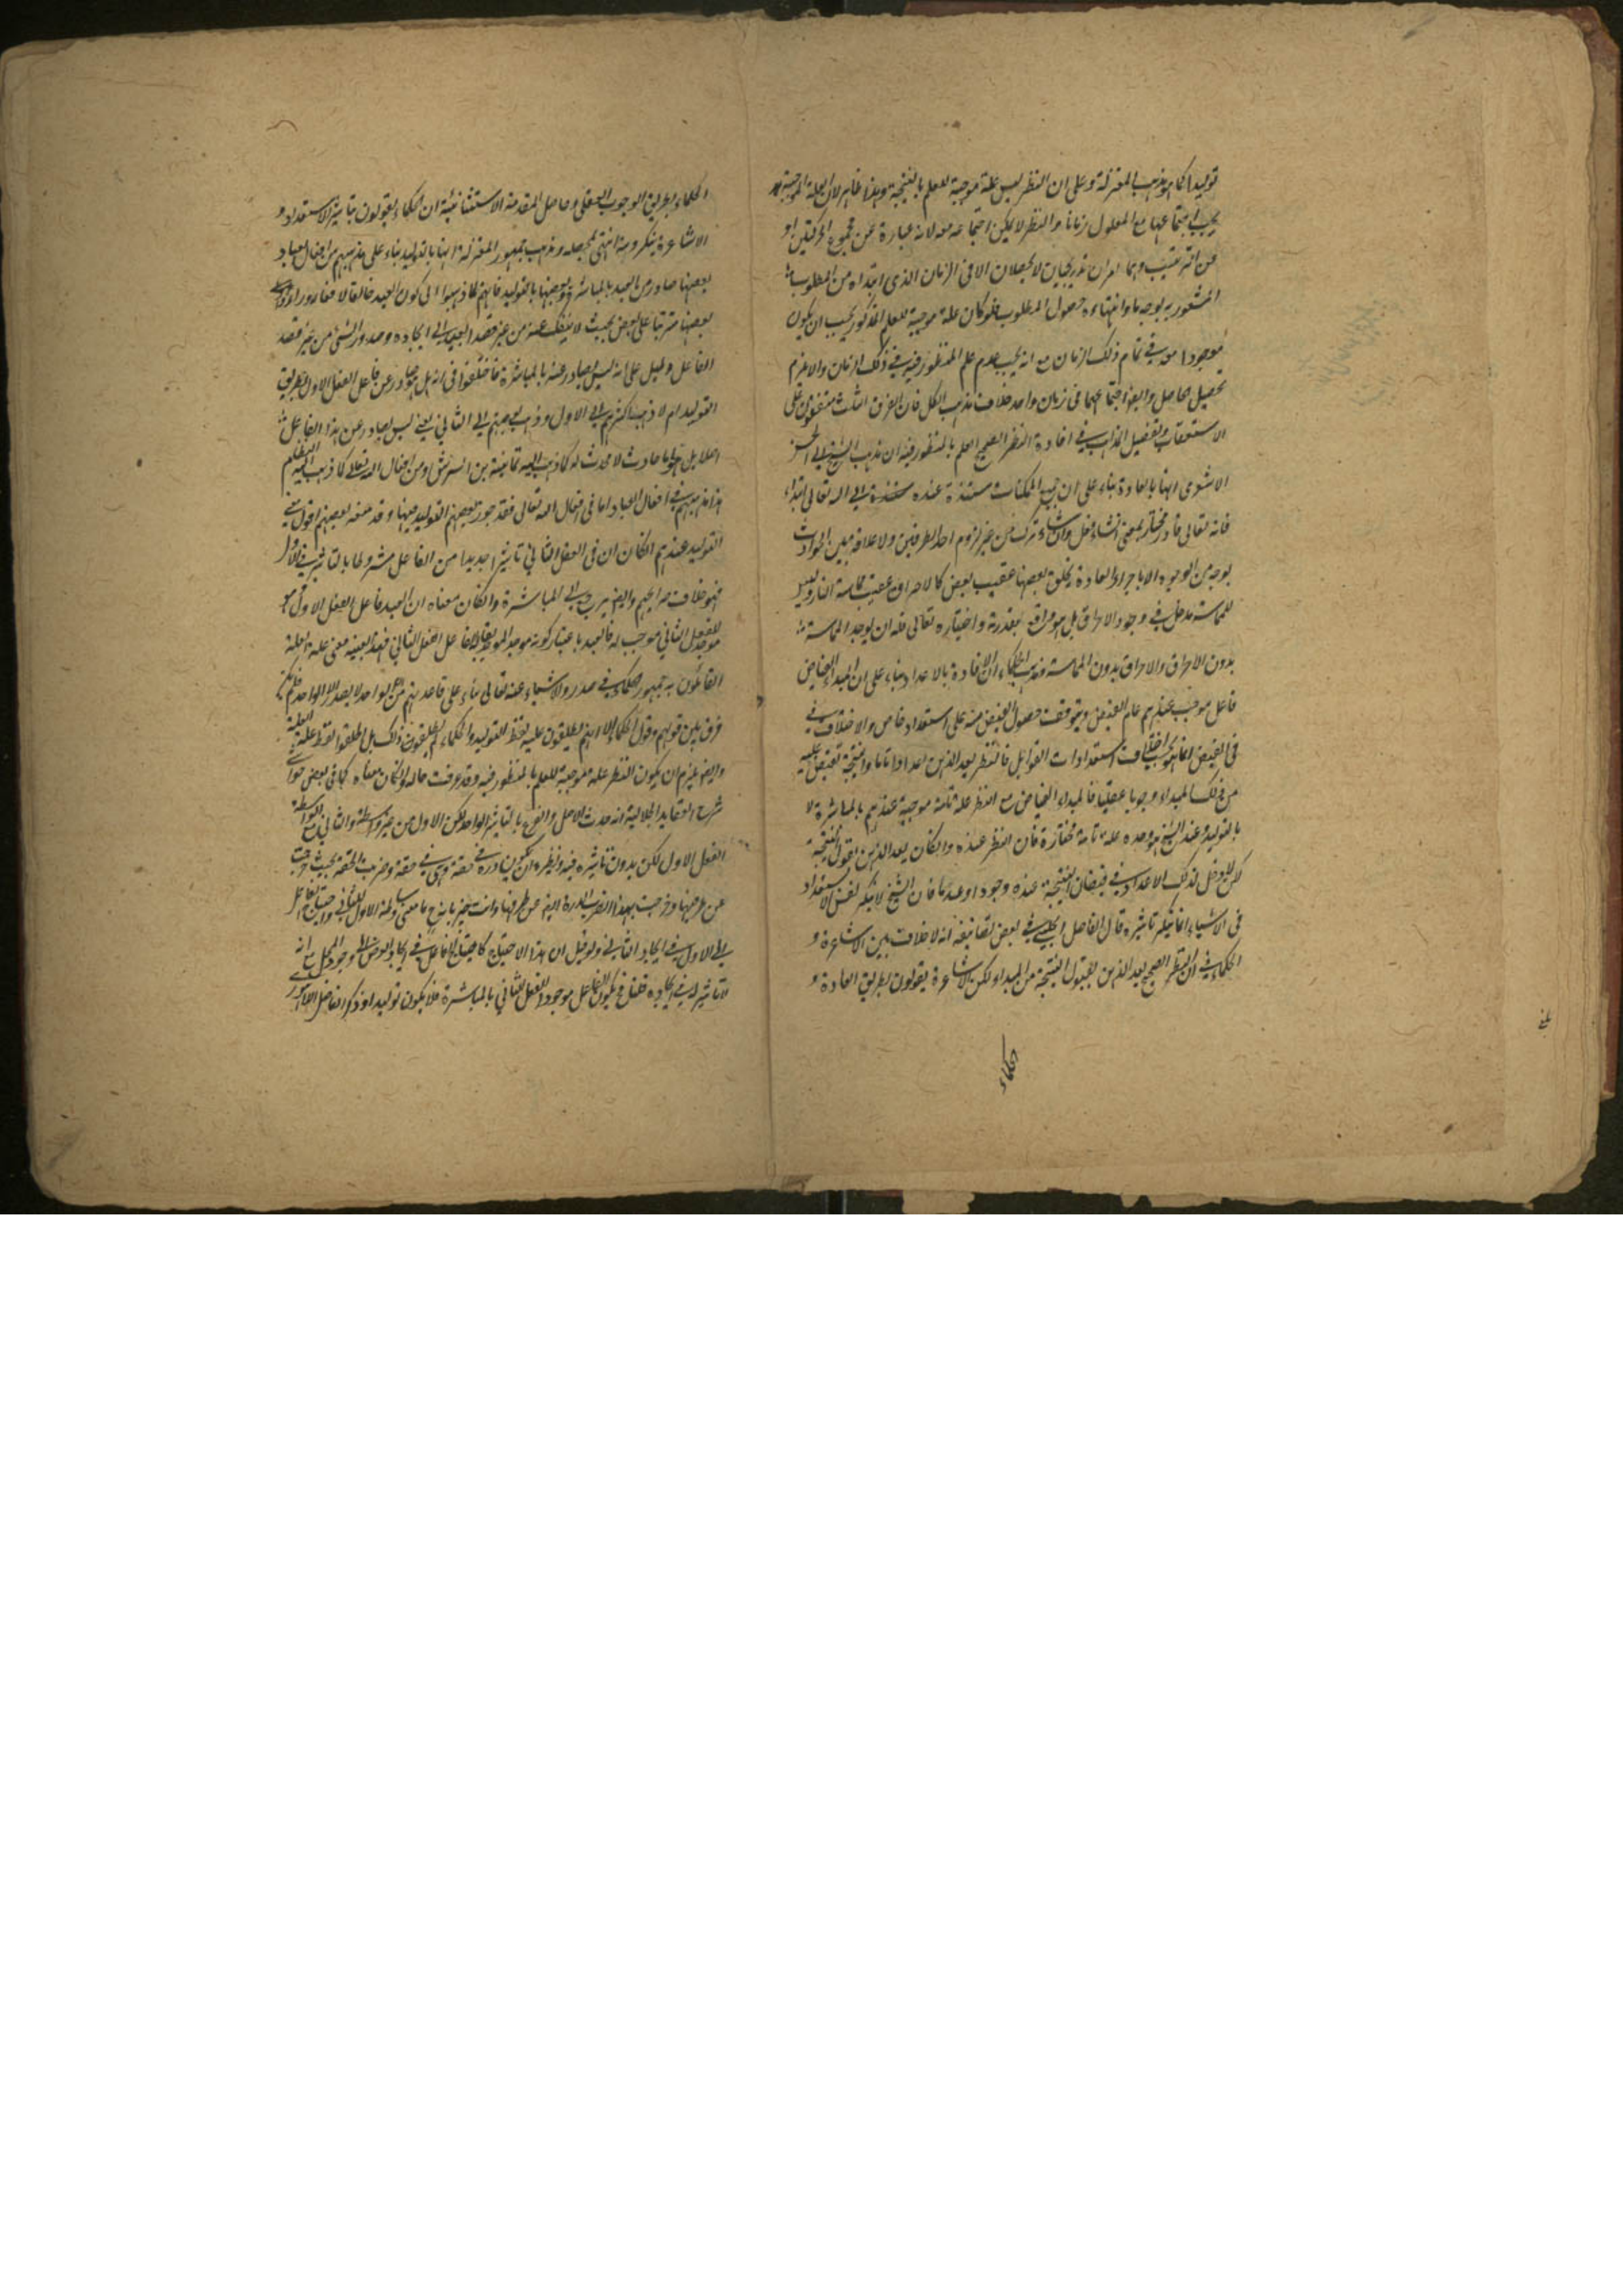 توليدا كما هو مذهب المعتزلة وعلى ان النظر ليس علة موجبة للعلم بالنتيجة وهذا ظاهر لان العلة الموجبة
يجب اجتماعها مع المعلول زمانا والنظر لا يمكن اجتماعه معه لانه عبارة عن مجموع الحركتين او
عن الترتيب وهما امران تدريجيان لا يحصلان الا في الزمان الذي ابتداه من المطلوب
المشعور به بوجه ما وانتهاءه حصول المطلوب فلو كان علة موجبة للعلم المذكور يجب ان يكون
موجودا معه في تمام ذلك الزمان مع انه يجب عدم علم المنظور فيه في ذلك الزمان والا يلزم
تحصيل الحاصل وايضا اجتماعهما في زمان واحد خلاف مذهب الكل فان الفرق الثلث متفقون على
الاستعقاب وتفصيل المذاهب في افادة النظر الصحيح العلم بالمنظور فيه ان مذهب الشيخ ابي الحسن
الاشعرى انها بالعادة بناء على ان جميع الممكنات مستندة عنده الى الله تعالى ابتداء
فانه تعالى قادر مختار بمعنى ان شاء فعل وان شاء ترك من غير لزوم احد الطرفين ولا علاقة بين الحوادث
بوجه من الوجوه الا باجراء العادة بخلق بعضها عقيب بعض كالاحراق عقيب مماسة النار وليس
للمماسة مدخل في وجود الاحراق بل هو واقع بقدرته واختياره تعالى فله ان يوجد المماسة
بدون الاحراق والاحراق بدون المماسة ومذهب الحكماء ان الافادة بالاعداد بناء على ان المبداء الفياض
فاعل موجب عندهم عام الفيض ويتوقف حصول الفيض منه على استعداد خاص والاختلاف
في الفيض انما هو بحسب اختلاف استعدادات القوابل فالنظر يعد الذهن اعدادا تاما والنتيجة تفيض عليه
من ذلك المبداء وجوبا عقليا فالمبداء الفياض مع النظر علة تامة موجبة عندهم بالمباشرة لا
بالتوليد وعند الشيخ هو وحده علة تامة مختارة فان النظر عنده وان كان يعد الذهن لقبول النتيجة
لكن لا دخل لذلك الاعداد في فيضان النتيجة عنده وجودا وعدما فان الشيخ لا ينكر نفس الاستعداد
في الاشياء انما ينكر تاثيره قال الفاضل الچلبي في بعض تصانيفه انه لا خلاف بين الاشاعرة و
الحكماء في ان النظر الصحيح يعد الذهن لقبول النتيجة من المبداء ولكن الاشاعرة يقولون بطريق العادة و
الحكماء
الحكماء بطريق الوجوب العقلي وحاصل المقدمة الاستثنائية ان الحكماء يقولون بتاثير الاستعداد و
الاشاعرة ينكرونه انتهى محصله ومذهب جمهور المعتزلة انها بالتوليد بناء على مذهبهم من افعال العباد
بعضها صادر من العبد بالمباشرة وبعضها بالتوليد فانهم لما ذهبوا الى كون العبد خالقا لافعاله وراوا
بعضها مترتبا على بعض بحيث لا ينفك عنه من غير قصد العبد الى ايجاده وصدور الشئ من غير قصد
الفاعل دليل على انه ليس بصادر عنه بالمباشرة فاختلفوا في انه هل هو صادر عن فاعل الفعل الاول بطريق
التوليد ام لا ذهب اكثرهم الى الاول وذهب بعضهم الى الثاني يعني ليس بصادر عن هذا الفاعل
اصلا بل هو اما حادث لا محدث له كما ذهب اليه ثمامة بن اشرس او من افعال الله تعالى كما ذهب اليه النظام
هذا مذهبهم في افعال العباد اما في افعال الله تعالى فقد جوز بعضهم التوليد فيها وقد منعه بعضهم اقول معنى
التوليد عندهم ان كان ان في الفعل الثاني تاثيرا جديدا من الفاعل مشروطا بالتاثير في الاول
فهو خلاف صرايحهم وايضا يرجع الى المباشرة وان كان معناه ان العبد فاعل الفعل الاول
للفعل الثاني موجب له فالعبد باعتبار كونه موجد الموجد فاعل الفعل الثاني فهذا بعينه معنى علة العلة
القائلون به جمهور الحكماء في صدور الاشياء عنه تعالى بناء على قاعدتهم من ان الواحد لا يصدر الا الواحد فلم يكن
فرق بين قولهم وقول الحكماء الا انهم يطلقون عليه لفظ التوليد والحكماء لا يطلقون ذلك بل اطلقوا لفظ علة العلة
وايضا يلزم ان يكون النظر علة موجبة للعلم بالمنظور فيه وقد عرفت حاله وان كان معناه كما في بعض حواشي
شرح العقايد الجلالية انه حدث الاصل والفرع بالتاثير الواحد لكن الاول من غير واسطة والثاني مع الواسطة
الفعل الاول لكن بدون تاثيره فيه ونظيره ان يكون درة في حقة وهي في حقة وضرب الحقة بحيث
عن طرفها وخرجت بهذا الضرب الدرة ايضا عن طرفها وانت خبير بان ح ما معنى وساطة الاول للثاني واحتياج الفاعل
الى الاول في ايجاد الثاني ولو قيل ان هذا الاحتياج كاحتياج الفاعل في ايجاد العرض الى وجود المحل مع انه
لا تاثير له في ايجاده قلنا فح يكون الفاعل موجدا للفعل الثاني بالمباشرة فلا يكون توليدا وذكر الفاضل اللاهوري